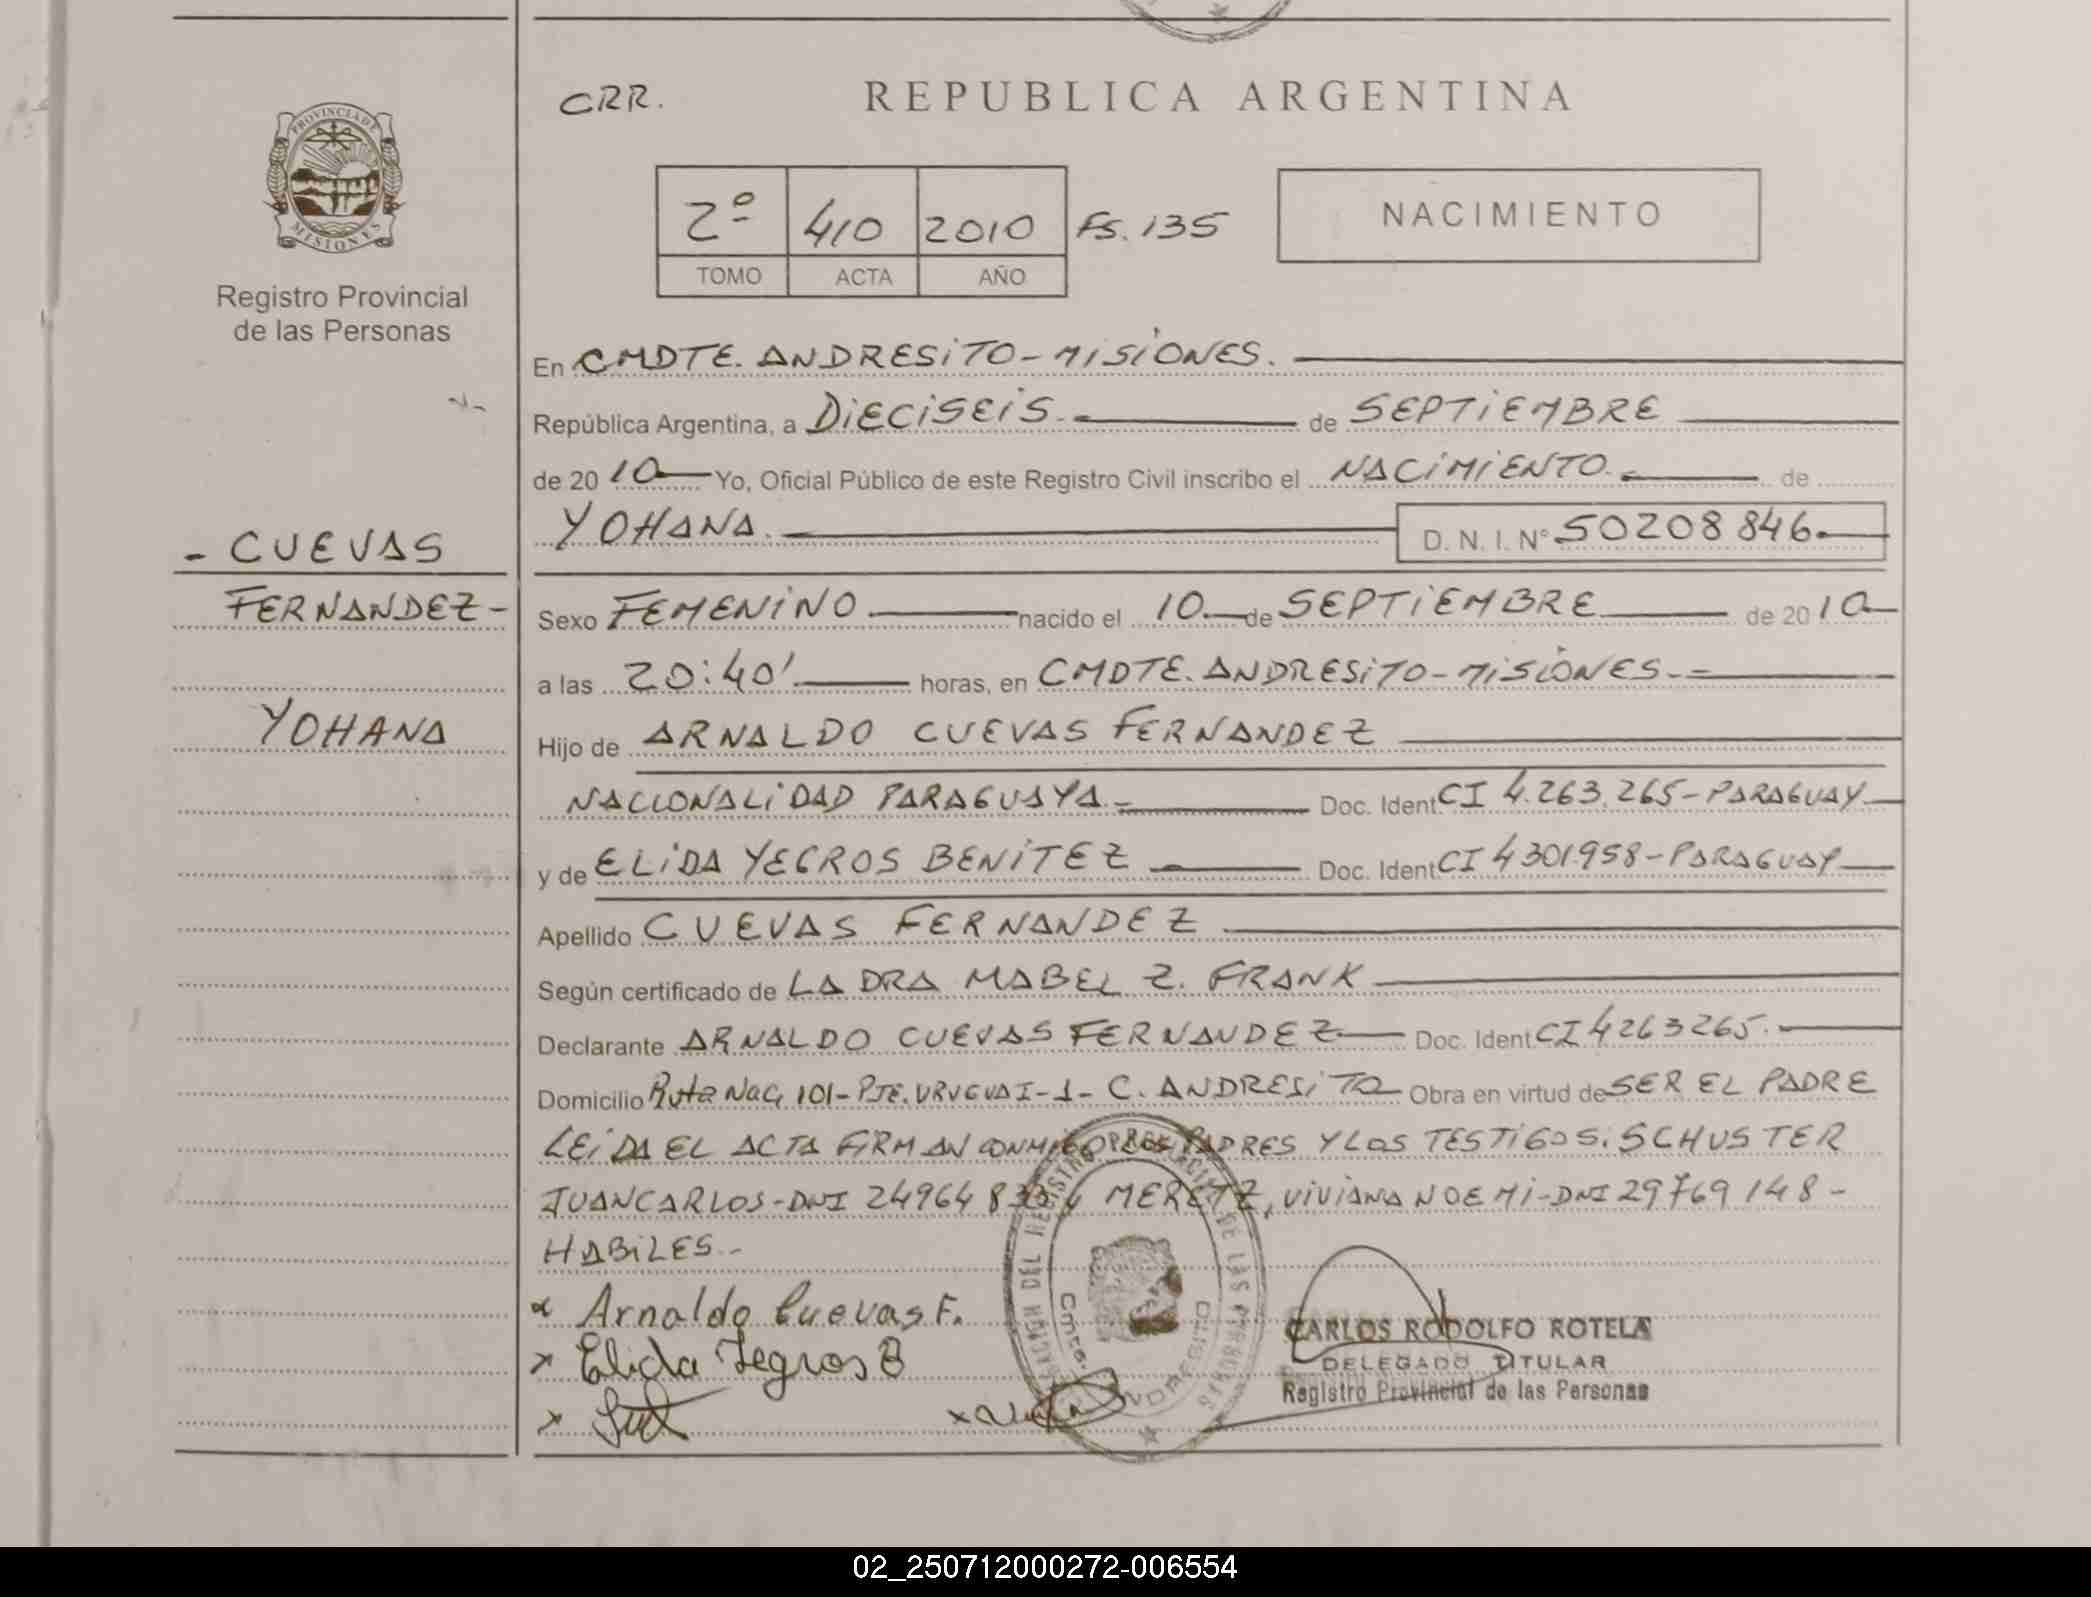 CRR.
REPUBLICA ARGENTINA
PROVINCIA DE MISIONES
Registro Provincial
de las Personas
2º 410 2010 Fs. 135
TOMO ACTA AÑO
NACIMIENTO
En CMDTE. ANDRESITO - MISIONES.
República Argentina, a DIECISEIS. de SEPTIEMBRE
de 20 10 Yo, Oficial Público de este Registro Civil inscribo el NACIMIENTO. de
YOHANA. D. N. I. Nº 50208846.
- CUEVAS
FERNANDEZ -
YOHANA
Sexo FEMENINO nacido el 10 de SEPTIEMBRE de 20 10
a las 20:40' horas, en CMDTE. ANDRESITO - MISIONES. -
Hijo de ARNALDO CUEVAS FERNANDEZ
NACIONALIDAD PARAGUAYA. - Doc. Ident. CI 4.263.265 - PARAGUAY
y de ELIDA YEGROS BENITEZ Doc. Ident CI 4301958 - PARAGUAY
Apellido CUEVAS FERNANDEZ
Según certificado de LA DRA MABEL Z. FRANK
Declarante ARNALDO CUEVAS FERNANDEZ Doc. Ident. CI 4263265.
Domicilio Ruta Nac, 101 - PTE. URUGUAI - 1 - C. ANDRESITO Obra en virtud de SER EL PADRE
LEIDA EL ACTA FIRMAN CONMIGO LOS PADRES Y LOS TESTIGOS: SCHUSTER
JUAN CARLOS - DNI 24964 MERETZ, VIVIANA NOEMI - DNI 29769148 -
HABILES. -
x Arnaldo Cuevas F.
x Elida Yegros B
x
x
DEL REGISTRO PROVINCIAL DE LAS PERSONAS
Cmte. ANDRESITO
CARLOS RODOLFO ROTELA
DELEGADO TITULAR
Registro Provincial de las Personas
02_250712000272-006554